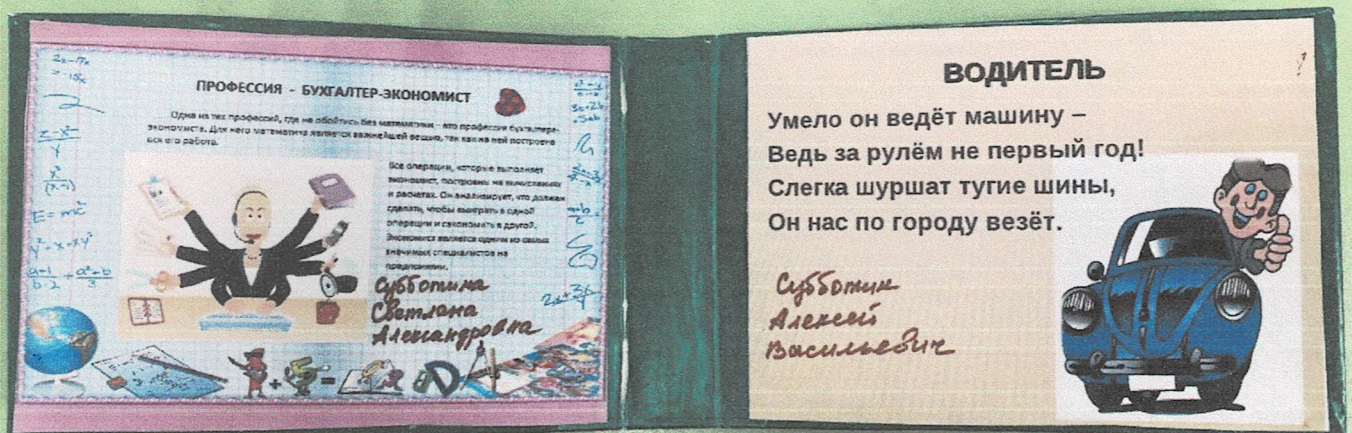 ПРОФЕССИЯ - БУХГАЛТЕР-ЭКОНОМИСТ
Одна из тех профессий, где не обойтись без математики - это профессия бухгалтера-
экономиста. Для него математика является важнейшей вещью, так как на ней построена
вся его работа.
Все операции, которые выполняет
экономист, построены на вычислениях
и расчетах. Он анализирует, что должен
сделать, чтобы выиграть в одной
операции и сэкономить в другой.
Экономист является одним из самых
значимых специалистов на
предприятии.
Субботина
Светлана
Александровна
E=mc²
ВОДИТЕЛЬ
Умело он ведёт машину –
Ведь за рулём не первый год!
Слегка шуршат тугие шины,
Он нас по городу везёт.
Субботин
Алексей
Васильевич